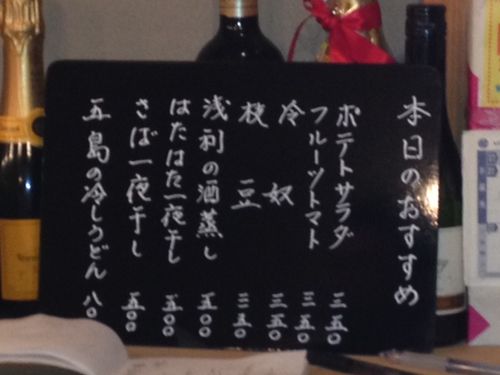 本日のおすすめ
ポテトサラダ 三五〇
フルーツトマト 三五〇
冷奴 三五〇
枝豆 三五〇
浅利の酒蒸し 五〇〇
はたはた一夜干し 五〇〇
さば一夜干し 五〇〇
五島の冷しうどん 八〇